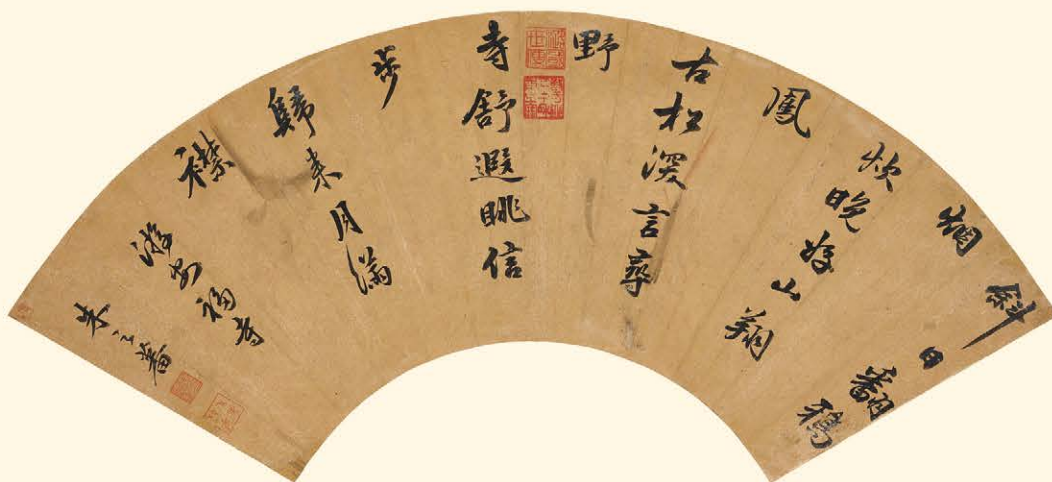 斜日翻鴉
烟
炊晚好山翔
鳳
古松深言尋
野
寺舒遐眺信
步
歸来月滿
襟
游安福寺
朱之蕃